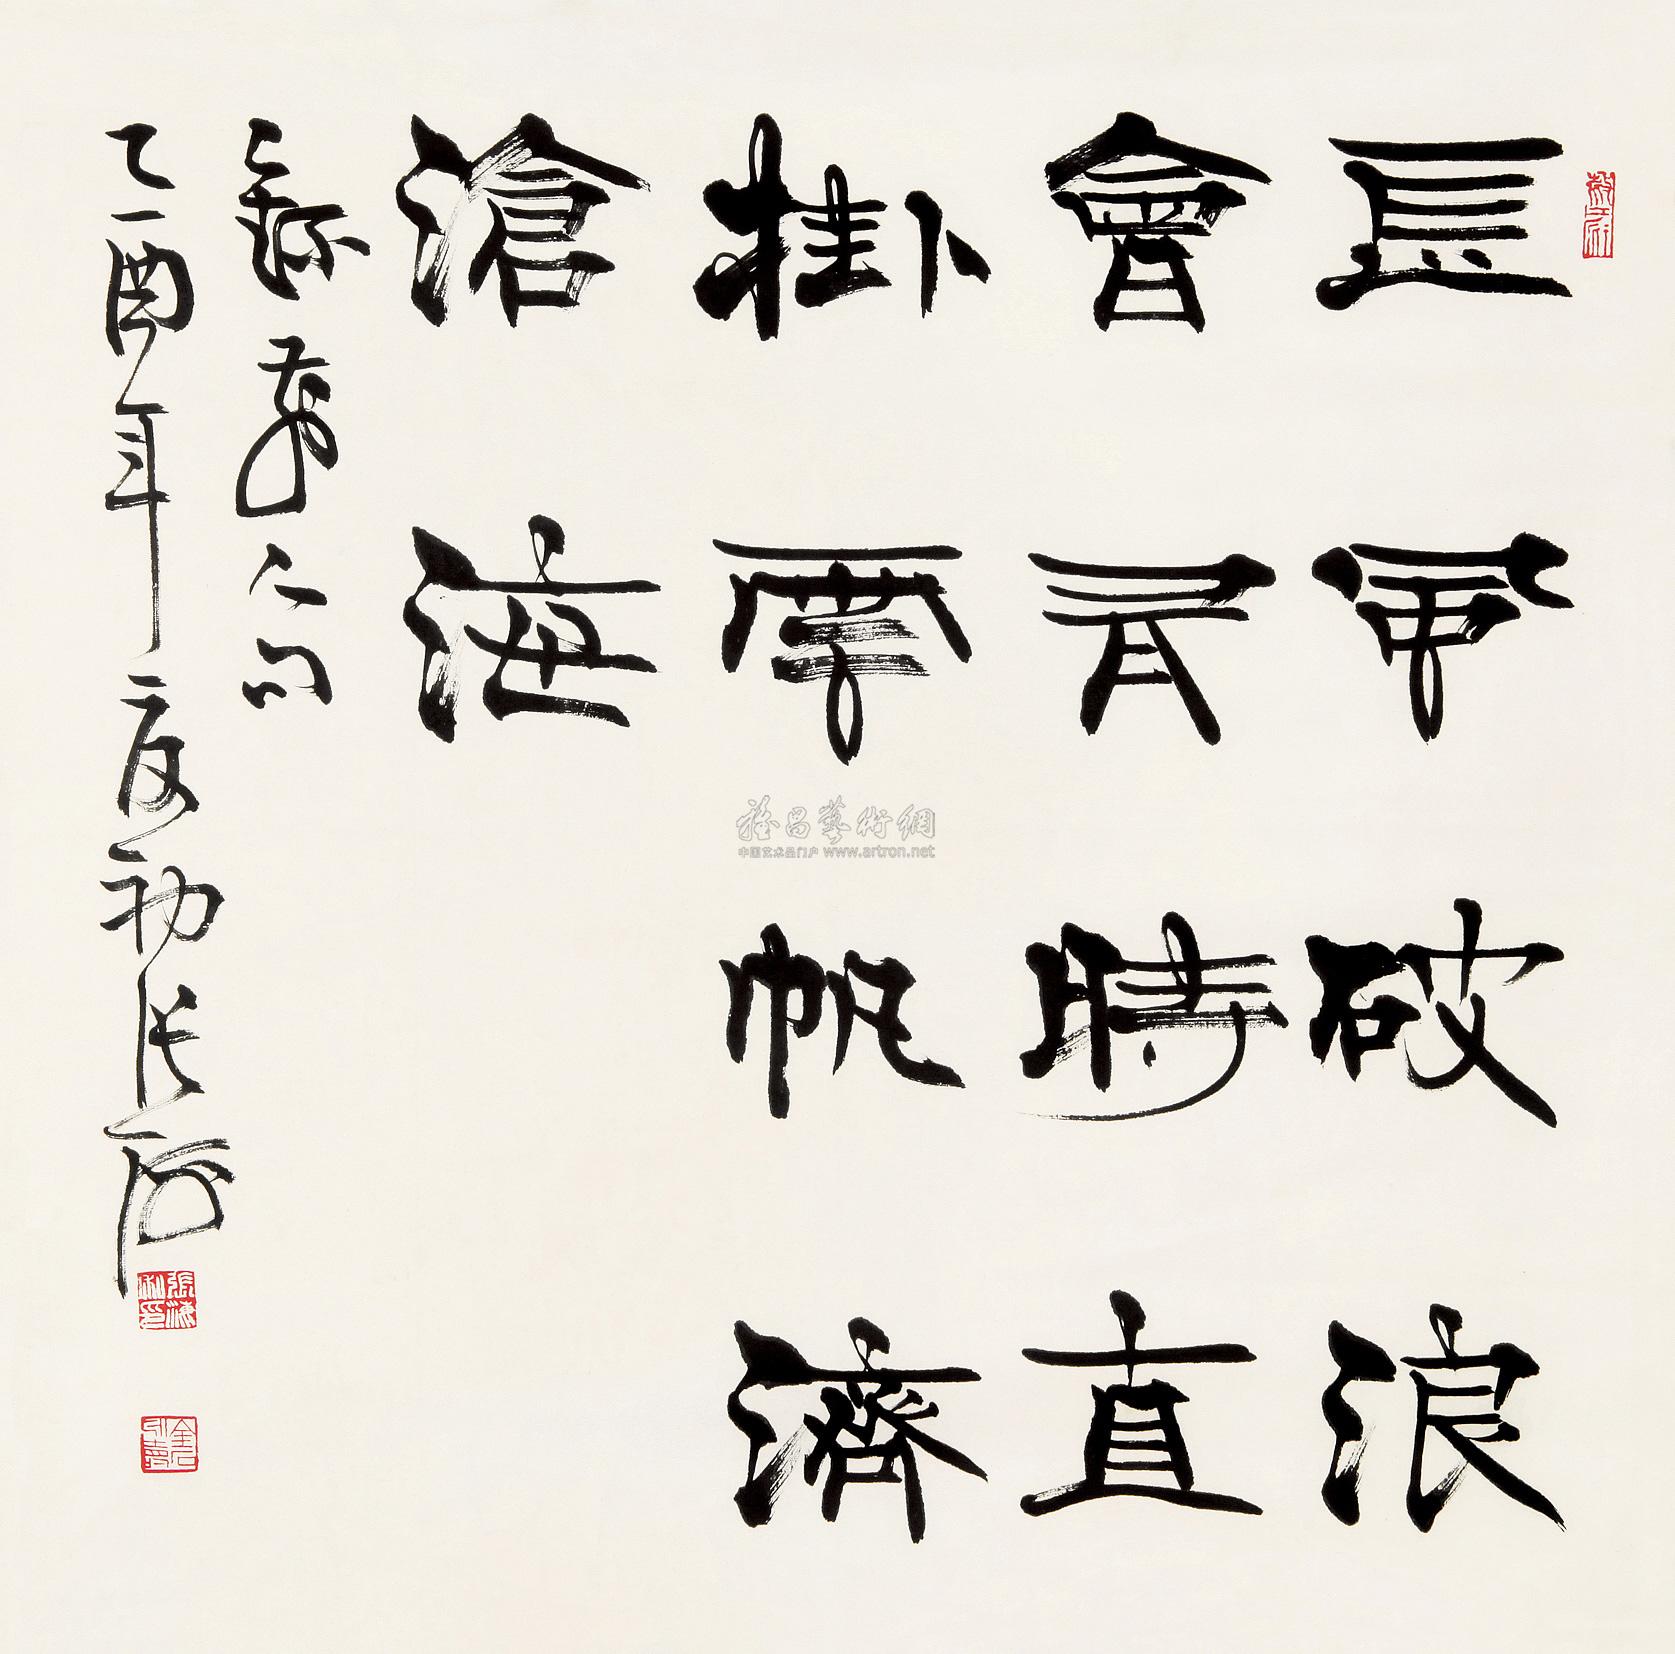 長風破浪
會有時直
掛雲帆濟
滄海
錄前人句
乙酉年夏初張
雅昌藝術網
中国艺术品门户 www.artron.net